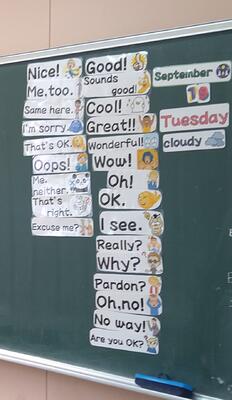 Nice!
Me, too.
Same here.
I'm sorry
That's OK.
Oops!
Me,
neither.
That's
right.
Excuse me?
Good!
Sounds
good!
Cool!
Great!!
Wonderful!!
Wow!
Oh!
OK.
I see.
Really?
Why?
Pardon?
Oh,no!
No way!
Are you OK?
September
Tuesday
cloudy